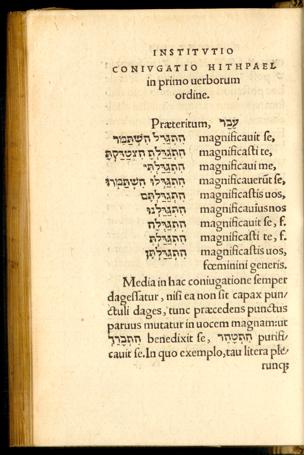 INSTITVTIO
CONIVGATIO HITHPAEL
in primo uerborum
ordine.
Præteritum, עָבָר
הִתְגַּדֵּל הִשְׁתַּמֵּר magnificauit se,
הִתְגַּדַּלְתָּ הִצְטַדַּקְתָּ magnificasti te,
הִתְגַּדַּלְתִּי magnificaui me,
הִתְגַּדְּלוּ הִשְׁתַּמְּרוּ magnificauerũt se,
הִתְגַּדַּלְתֶּם magnificastis uos,
הִתְגַּדַּלְנוּ magnificauius nos
הִתְגַּדְּלָה magnificauit se, f.
הִתְגַּדַּלְתְּ magnificasti te, f.
הִתְגַּדַּלְתֶּן magnificastis uos,
fœminini generis.
Media in hac coniugatione semper
dagessatur, nisi ea non sit capax pun-
ctuli dages, tunc præcedens punctus
paruus mutatur in uocem magnam: ut
הִתְבָּרֵךְ benedixit se, הִתְטַהֵר purifi-
cauit se. In quo exemplo, tau litera ple-
runq;